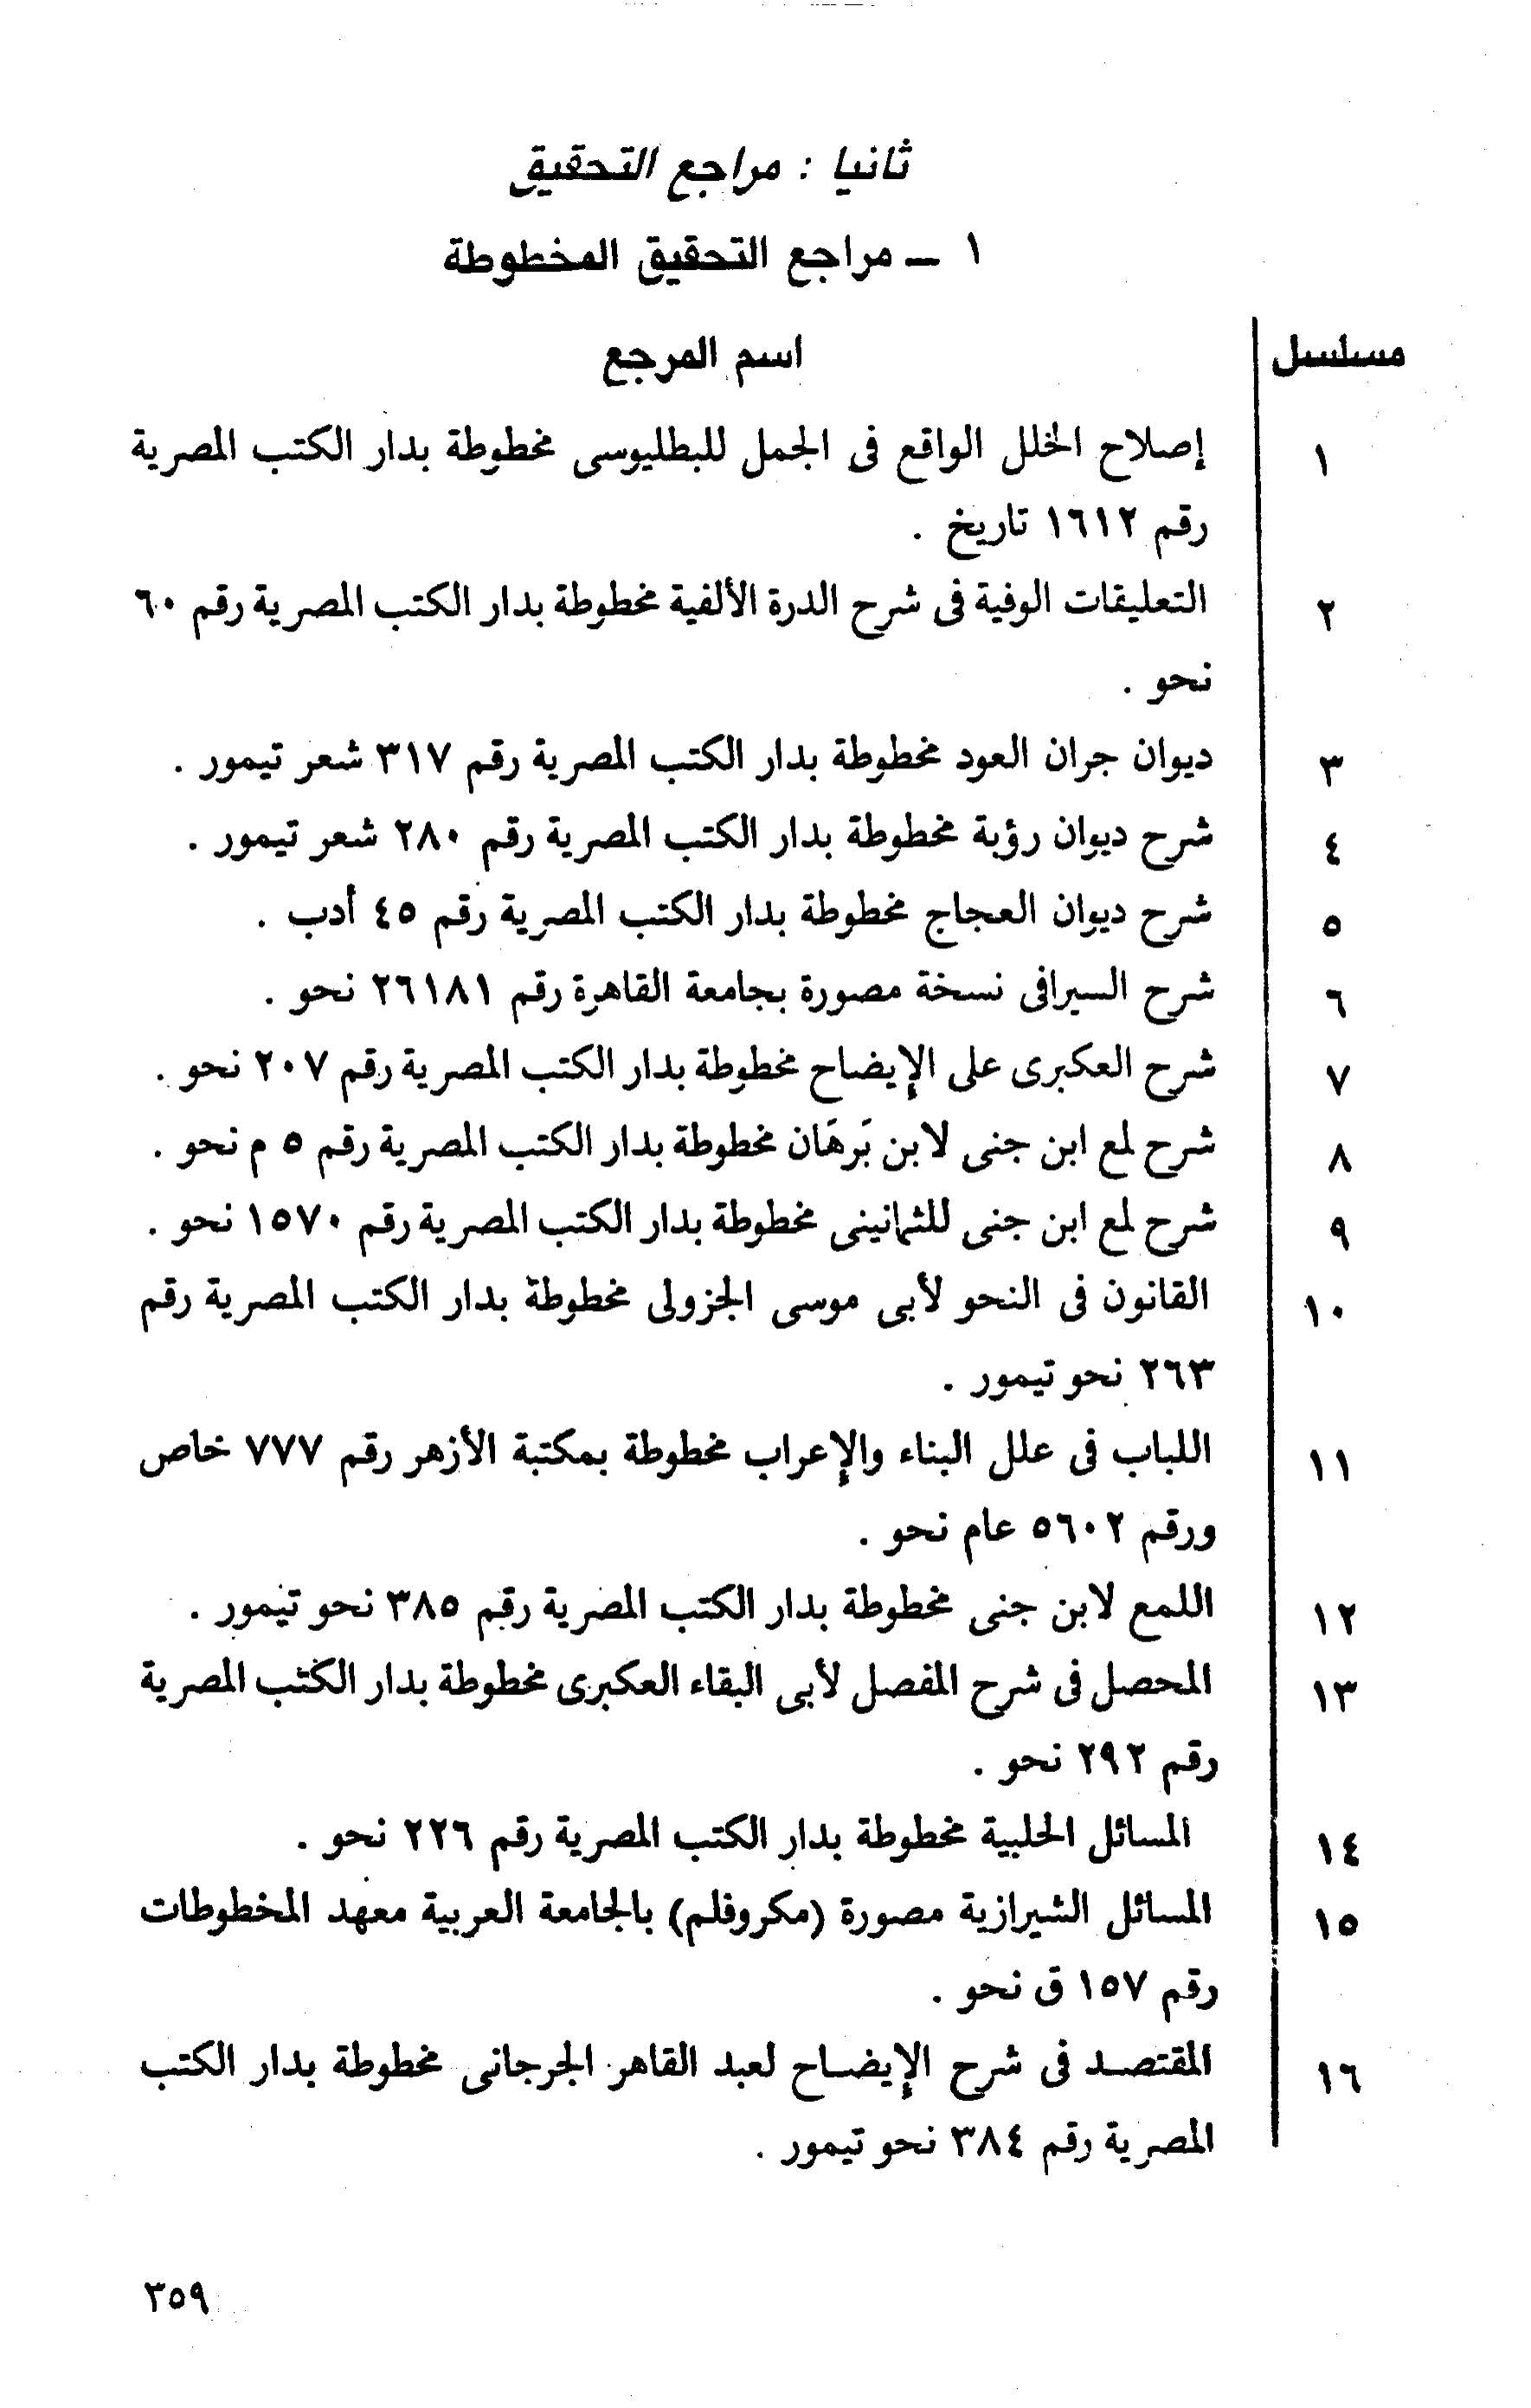 ثانيا : مراجع التحقيق
١ ـ مراجع التحقيق المخطوطة
مسلسل اسم المرجع
١ إصلاح الخلل الواقع فى الجمل للبطليوسى مخطوطة بدار الكتب المصرية
رقم ١٦١٢ تاريخ .
٢ التعليقات الوفية فى شرح الدرة الألفية مخطوطة بدار الكتب المصرية رقم ٦٠
نحو .
٣ ديوان جران العود مخطوطة بدار الكتب المصرية رقم ٣١٧ شعر تيمور .
٤ شرح ديوان رؤبة مخطوطة بدار الكتب المصرية رقم ٢٨٠ شعر تيمور .
٥ شرح ديوان العجاج مخطوطة بدار الكتب المصرية رقم ٤٥ أدب .
٦ شرح السيرافى نسخة مصورة بجامعة القاهرة رقم ٢٦١٨١ نحو .
٧ شرح العكبرى على الإيضاح مخطوطة بدار الكتب المصرية رقم ٢٠٧ نحو .
٨ شرح لمع ابن جنى لابن بَرهَان مخطوطة بدار الكتب المصرية رقم ٥ م نحو .
٩ شرح لمع ابن جنى للثمانينى مخطوطة بدار الكتب المصرية رقم ١٥٧٠ نحو .
١٠ القانون فى النحو لأبى موسى الجزولى مخطوطة بدار الكتب المصرية رقم
٢٦٣ نحو تيمور .
١١ اللباب فى علل البناء والإعراب مخطوطة بمكتبة الأزهر رقم ٧٧٧ خاص
ورقم ٥٦٠٢ عام نحو .
١٢ اللمع لابن جنى مخطوطة بدار الكتب المصرية رقم ٣٨٥ نحو تيمور .
١٣ المحصل فى شرح المفصل لأبى البقاء العكبرى مخطوطة بدار الكتب المصرية
رقم ٢٩٢ نحو .
١٤ المسائل الحلبية مخطوطة بدار الكتب المصرية رقم ٢٢٦ نحو .
١٥ المسائل الشيرازية مصورة (مكروفلم) بالجامعة العربية معهد المخطوطات
رقم ١٥٧ ق نحو .
١٦ المقتصد فى شرح الإيضاح لعبد القاهر الجرجانى مخطوطة بدار الكتب
المصرية رقم ٣٨٤ نحو تيمور .
٣٥٩